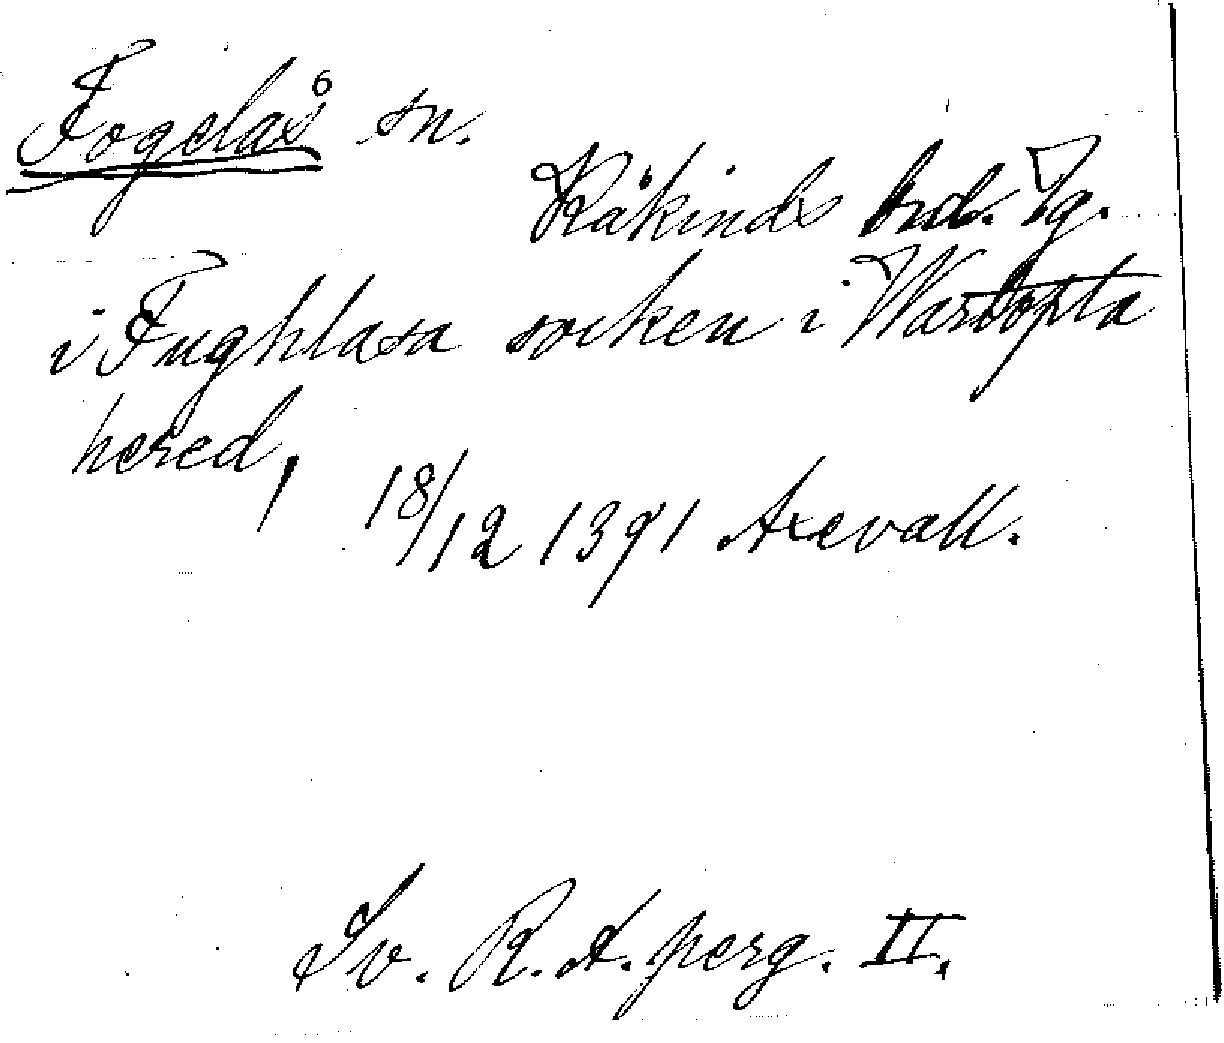 Fogelås sn.
Kåkinds hrd. Vg.
i Fughlasa socken i Wartopta
hered, 18/12 1391 Axevall.
Sv. R. A. perg. II.